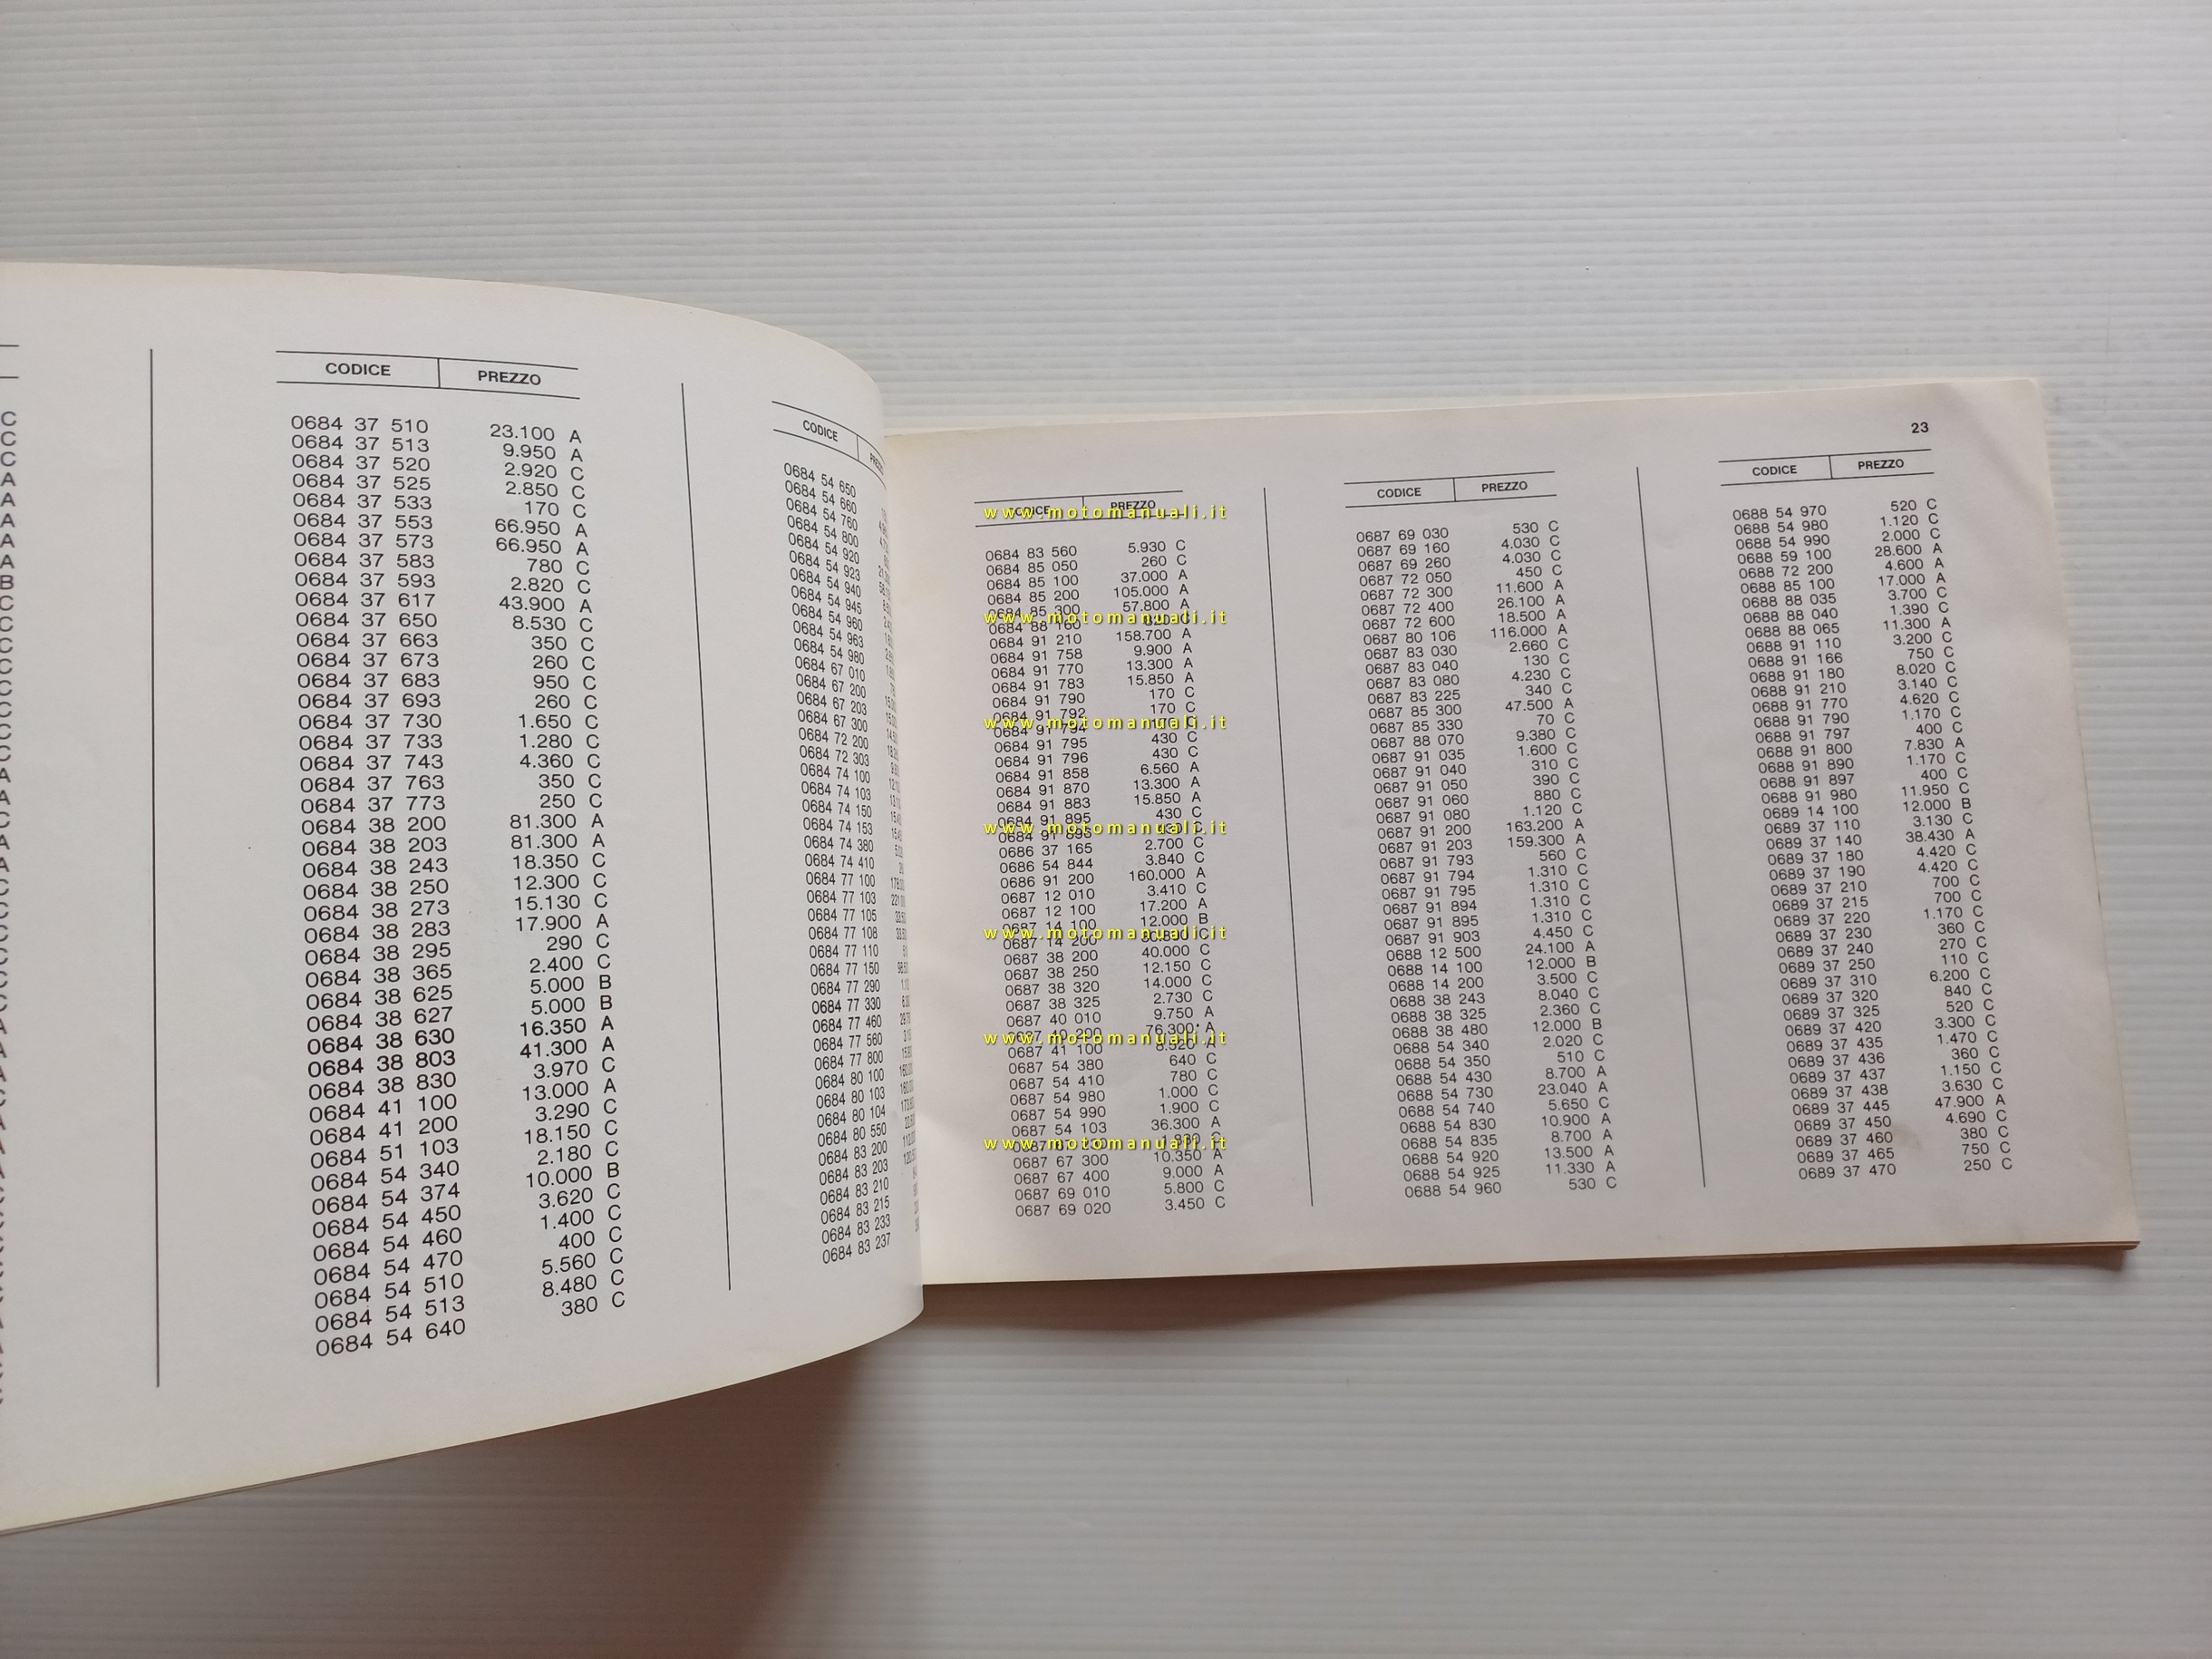 CODICE PREZZO
0684 37 510 23.100 A
0684 37 513 9.950 A
0684 37 520 2.920 C
0684 37 525 2.850 C
0684 37 533 170 C
0684 37 553 66.950 A
0684 37 573 66.950 A
0684 37 583 780 C
0684 37 593 2.820 C
0684 37 617 43.900 A
0684 37 650 8.530 C
0684 37 663 350 C
0684 37 673 260 C
0684 37 683 950 C
0684 37 693 260 C
0684 37 730 1.650 C
0684 37 733 1.280 C
0684 37 743 4.360 C
0684 37 763 350 C
0684 37 773 250 C
0684 38 200 81.300 A
0684 38 203 81.300 A
0684 38 243 18.350 C
0684 38 250 12.300 C
0684 38 273 15.130 C
0684 38 283 17.900 A
0684 38 295 290 C
0684 38 365 2.400 C
0684 38 625 5.000 B
0684 38 627 5.000 B
0684 38 630 16.350 A
0684 38 803 41.300 A
0684 38 830 3.970 C
0684 41 100 13.000 A
0684 41 200 3.290 C
0684 51 103 18.150 C
0684 54 340 2.180 C
0684 54 374 10.000 B
0684 54 450 3.620 C
0684 54 460 1.400 C
0684 54 470 400 C
0684 54 510 5.560 C
0684 54 513 8.480 C
0684 54 640 380 C
CODICE
0684 54 650
0684 54 660
0684 54 760
0684 54 800
0684 54 920
0684 54 923
0684 54 940
0684 54 945
0684 54 960
0684 54 963
0684 54 980
0684 67 010
0684 67 200
0684 67 203
0684 67 300
0684 72 200
0684 72 303
0684 74 100
0684 74 103
0684 74 150
0684 74 153
0684 74 380
0684 74 410
0684 77 100
0684 77 103
0684 77 105
0684 77 108
0684 77 110
0684 77 150
0684 77 290
0684 77 330
0684 77 460
0684 77 560
0684 77 800
0684 80 100
0684 80 103
0684 80 104
0684 80 550
0684 83 200
0684 83 203
0684 83 210
0684 83 215
0684 83 233
0684 83 237
23
CODICE PREZZO
www.motomanuali.it
0684 83 560 5.930 C
0684 85 050 260 C
0684 85 100 37.000 A
0684 85 200 105.000 A
0684 85 300 57.800 A
www.motomanuali.it
0684 88 160
0684 91 210 158.700 A
0684 91 758 9.900 A
0684 91 770 13.300 A
0684 91 783 15.850 A
0684 91 790 170 C
0684 91 792 170 C
www.motomanuali.it
0684 91 794
0684 91 795 430 C
0684 91 796 430 C
0684 91 858 6.560 A
0684 91 870 13.300 A
0684 91 883 15.850 A
0684 91 895 430 C
www.motomanuali.it
0686 37 165 2.700 C
0686 54 844 3.840 C
0686 91 200 160.000 A
0687 12 010 3.410 C
0687 12 100 17.200 A
0687 14 100 12.000 B
www.motomanuali.it
0687 14 200
0687 38 200 40.000 C
0687 38 250 12.150 C
0687 38 320 14.000 C
0687 38 325 2.730 C
0687 40 010 9.750 A
0687 40 200 76.300 A
www.motomanuali.it
0687 41 100
0687 54 380 640 C
0687 54 410 780 C
0687 54 980 1.000 C
0687 54 990 1.900 C
0687 54 103 36.300 A
www.motomanuali.it
0687 67 300 10.350 A
0687 67 400 9.000 A
0687 69 010 5.800 C
0687 69 020 3.450 C
CODICE PREZZO
0687 69 030 530 C
0687 69 160 4.030 C
0687 69 260 4.030 C
0687 72 050 450 C
0687 72 300 11.600 A
0687 72 400 26.100 A
0687 72 600 18.500 A
0687 80 106 116.000 A
0687 83 030 2.660 C
0687 83 040 130 C
0687 83 080 4.230 C
0687 83 225 340 C
0687 85 300 47.500 A
0687 85 330 70 C
0687 88 070 9.380 C
0687 91 035 1.600 C
0687 91 040 310 C
0687 91 050 390 C
0687 91 060 880 C
0687 91 080 1.120 C
0687 91 200 163.200 A
0687 91 203 159.300 A
0687 91 793 560 C
0687 91 794 1.310 C
0687 91 795 1.310 C
0687 91 894 1.310 C
0687 91 895 1.310 C
0687 91 903 4.450 C
0688 12 500 24.100 A
0688 14 100 12.000 B
0688 14 200 3.500 C
0688 38 243 8.040 C
0688 38 325 2.360 C
0688 38 480 12.000 B
0688 54 340 2.020 C
0688 54 350 510 C
0688 54 430 8.700 A
0688 54 730 23.040 A
0688 54 740 5.650 C
0688 54 830 10.900 A
0688 54 835 8.700 A
0688 54 920 13.500 A
0688 54 925 11.330 A
0688 54 960 530 C
CODICE PREZZO
0688 54 970 520 C
0688 54 980 1.120 C
0688 54 990 2.000 C
0688 59 100 28.600 A
0688 72 200 4.600 A
0688 85 100 17.000 A
0688 88 035 3.700 C
0688 88 040 1.390 C
0688 88 065 11.300 A
0688 91 110 3.200 C
0688 91 166 750 C
0688 91 180 8.020 C
0688 91 210 3.140 C
0688 91 770 4.620 C
0688 91 790 1.170 C
0688 91 797 400 C
0688 91 800 7.830 A
0688 91 890 1.170 C
0688 91 897 400 C
0688 91 980 11.950 C
0689 14 100 12.000 B
0689 37 110 3.130 C
0689 37 140 38.430 A
0689 37 180 4.420 C
0689 37 190 4.420 C
0689 37 210 700 C
0689 37 215 700 C
0689 37 220 1.170 C
0689 37 230 360 C
0689 37 240 270 C
0689 37 250 110 C
0689 37 310 6.200 C
0689 37 320 840 C
0689 37 325 520 C
0689 37 420 3.300 C
0689 37 435 1.470 C
0689 37 436 360 C
0689 37 437 1.150 C
0689 37 438 3.630 C
0689 37 445 47.900 A
0689 37 450 4.690 C
0689 37 460 380 C
0689 37 465 750 C
0689 37 470 250 C